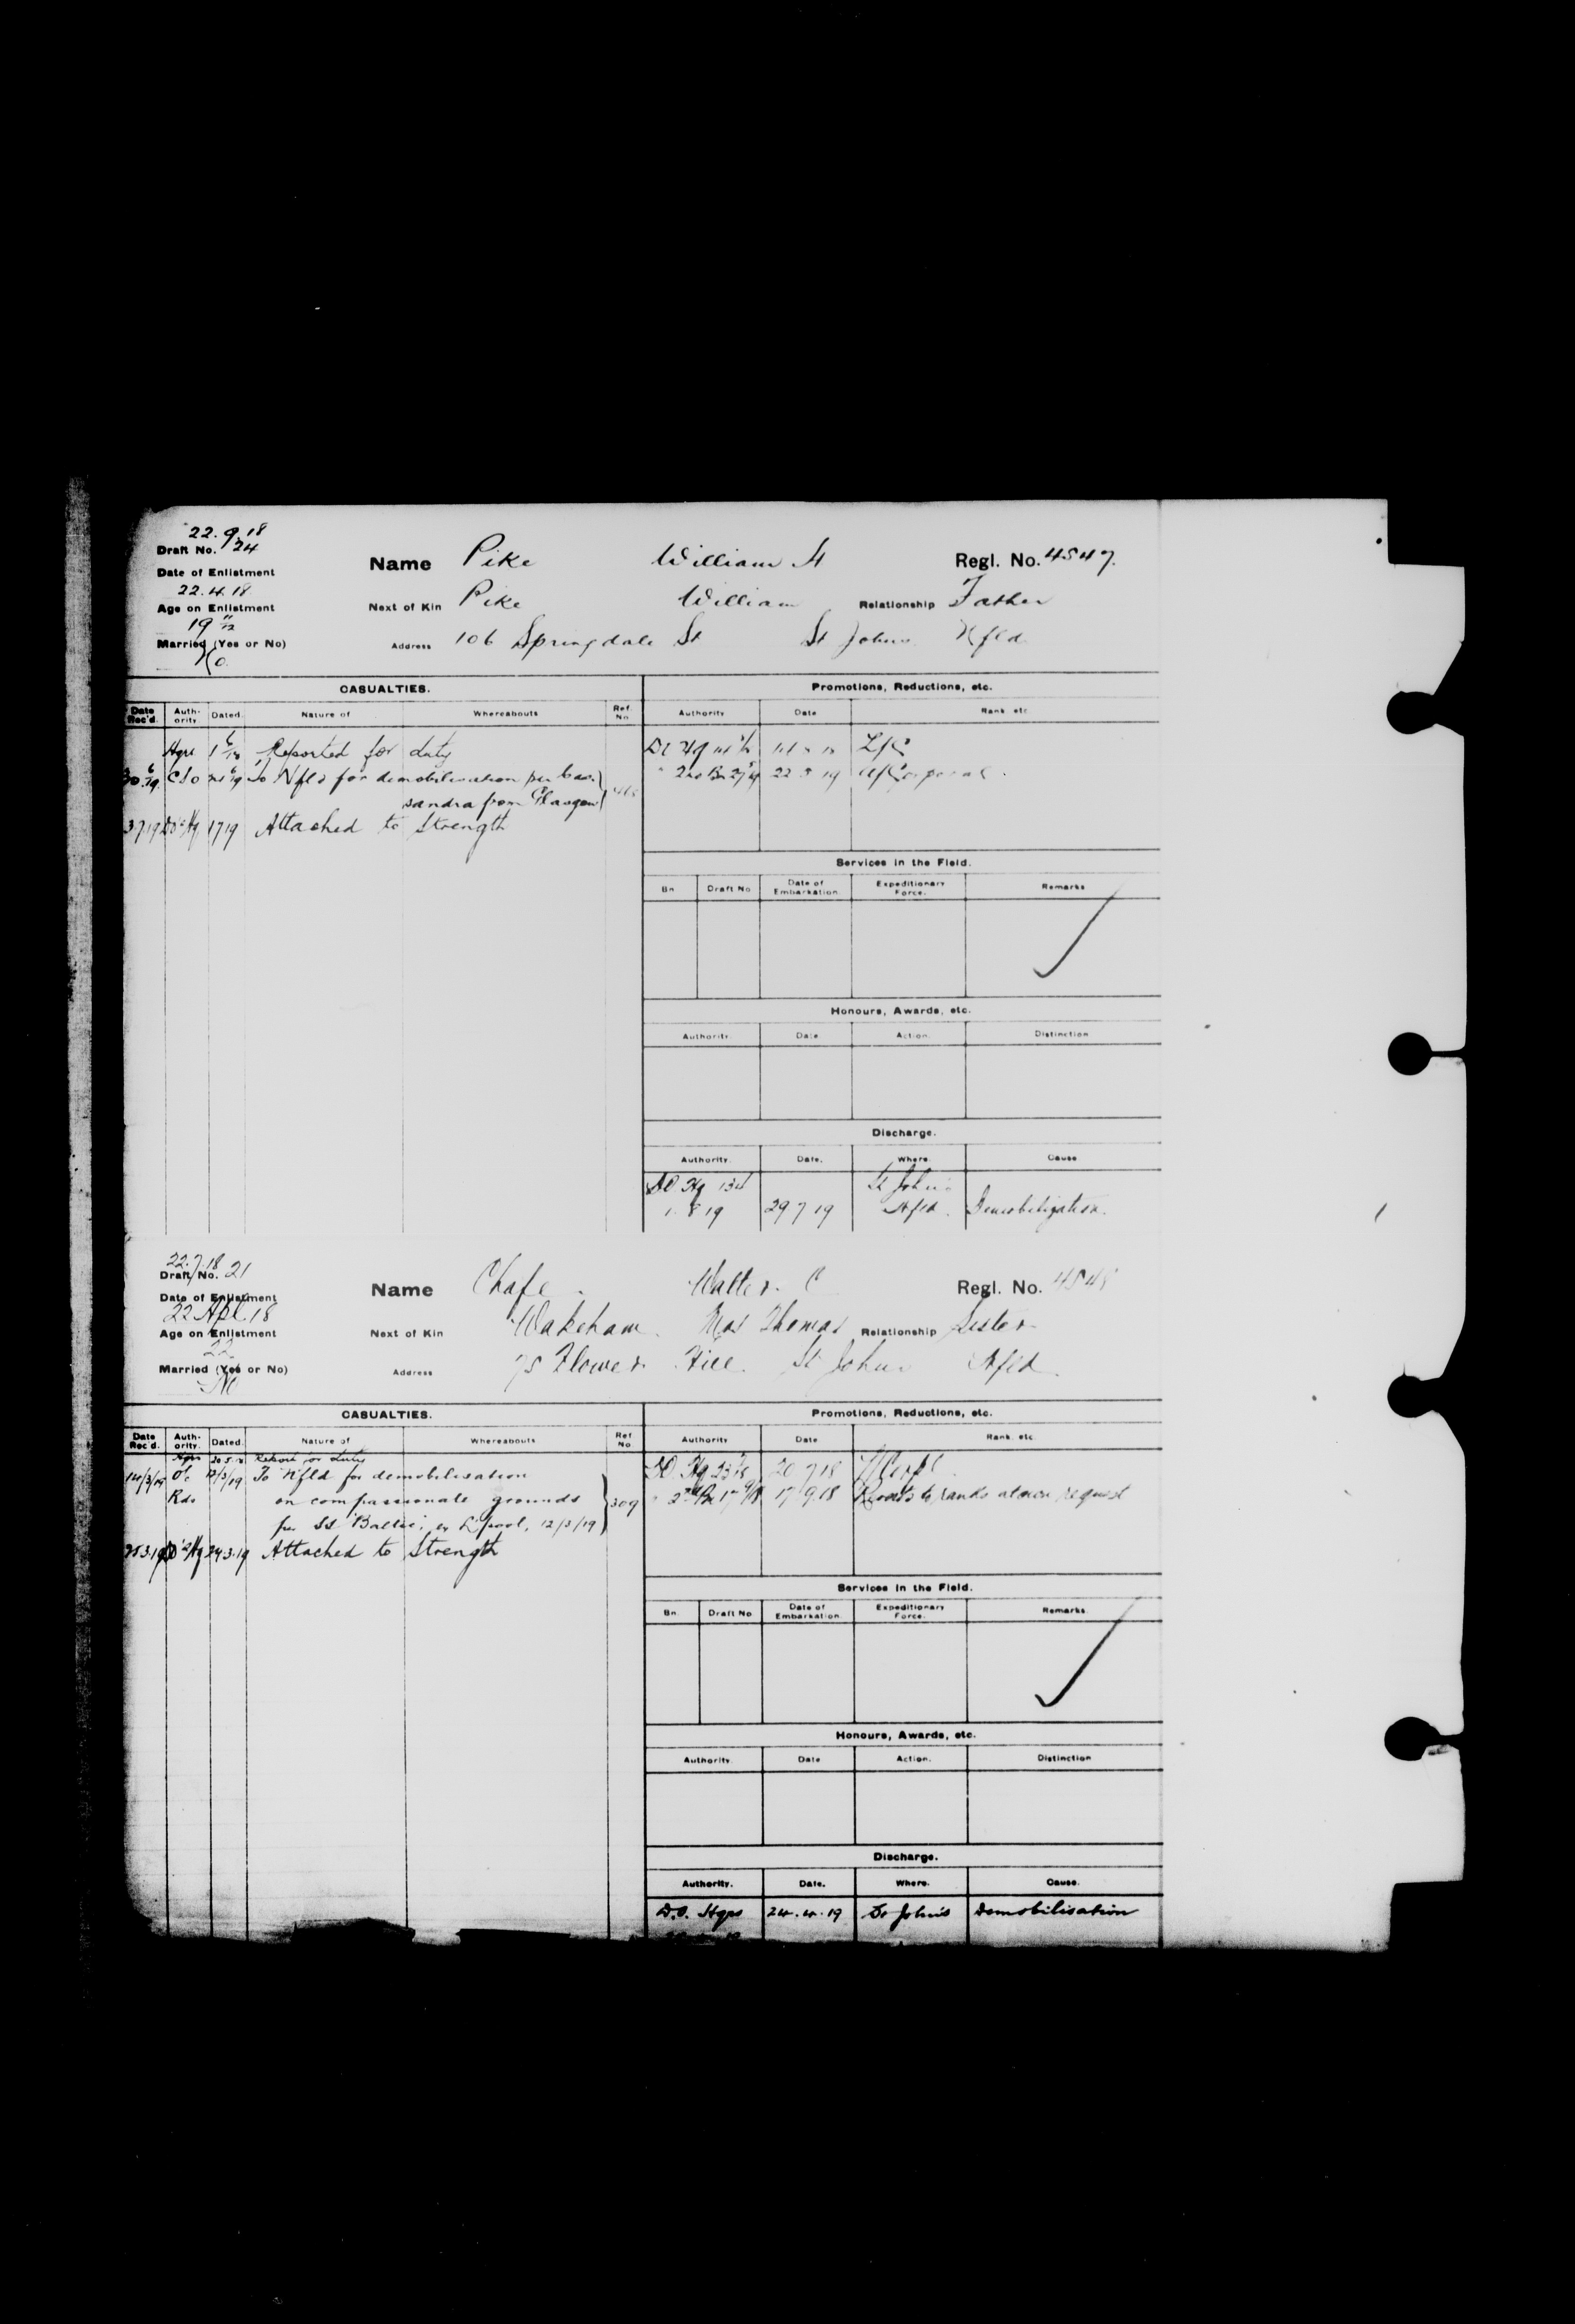 22.9.18
Draft No. 24
Name Pike William H Regl. No. 4547.
Date of Enlistment
22.4.18
Age on Enlistment Next of Kin Pike William Relationship Father
19 11/12
Married (Yes or No) Address 106 Springdale St St Johns Nfld
No.
CASUALTIES. Promotions, Reductions, etc.
Date Rec'd. Auth-ority. Dated. Nature of Whereabouts Ref. No. Authority Date Rank etc
Reported for duty L/C
30 6/19 CSO To Nfld for demobilisation per Cas- 2nd Bn 22 5 19 A/Corporal.
sandra from Glasgow
3.7.19 1 7 19 Attached to Strength
Services in the Field.
Bn Draft No Date of Embarkation. Expeditionary Force. Remarks
Honours, Awards, etc.
Authority. Date Action. Distinction
Discharge.
Authority. Date. Where. Cause
DO Hq St John's
1 8 19 29 7 19 Nfld. Demobilization.
22.7.18
Draft No. 21
Name Chafe. Walter. C Regl. No. 4548
Date of Enlistment
22 Apl. 18
Age on Enlistment Next of Kin Wakeham. Mrs Thomas Relationship Sister
22
Married (Yes or No) Address 75 Flower. Hill. St Johns Nfld.
No
CASUALTIES. Promotions, Reductions, etc.
Date Rec'd. Auth-ority. Dated. Nature of Whereabouts Ref No Authority Date Rank, etc
Report for duty
14/3/19 O/c 12/3/19 To Nfld for demobilisation DO. Hq 20 7 18 L/Corpl
Rds on compassionate grounds 309 2nd Bn 17 9 18 Reverts to ranks at own request
per SS "Baltic", ex L'pool, 12/3/19
25.3.19 24.3.19 Attached to Strength
Services in the Field.
Bn. Draft No Date of Embarkation. Expeditionary Force. Remarks.
Honours, Awards, etc.
Authority. Date Action. Distinction
Discharge.
Authority. Date. Where. Cause.
D.O. Hqrs 24.4.19 St John's Demobilisation